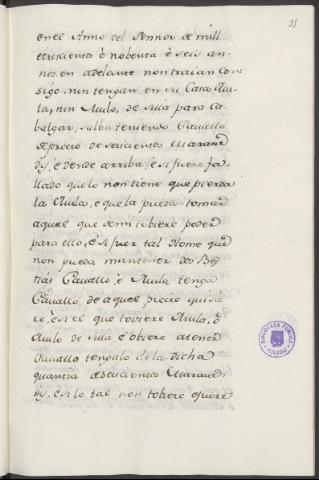 35
en el Anno del Sennor de mill
etrescientos é nobenta é seis an-
nos en adelante non traian Con
sigo nin tengan en su Casa Mu-
la, nin Mulo, de silla para Ca-
balgar, salbo teniendo Cavallo
de precio de seiscientos Marave
dis, é dende arriba, é si fuere fa-
llado que lo non tiene que pierda
la Mula, é que la pueda tomar
aquel que de mi tobiere poder
para ello, é si fuer tal Home que
non pueda mantener dos Bes
tias Cavallo é Mula tenga
Cavallo, de aquel precio qui sie
re, é si el que toviere Mula, ó
Mulo de silla é obiere atener
Cavallo tengalo de la dicha
quantia de seiscientos Marave
dis, é si lo tal non tobiere quiere
BIBLIOTECA PUBLICA
TOLEDO